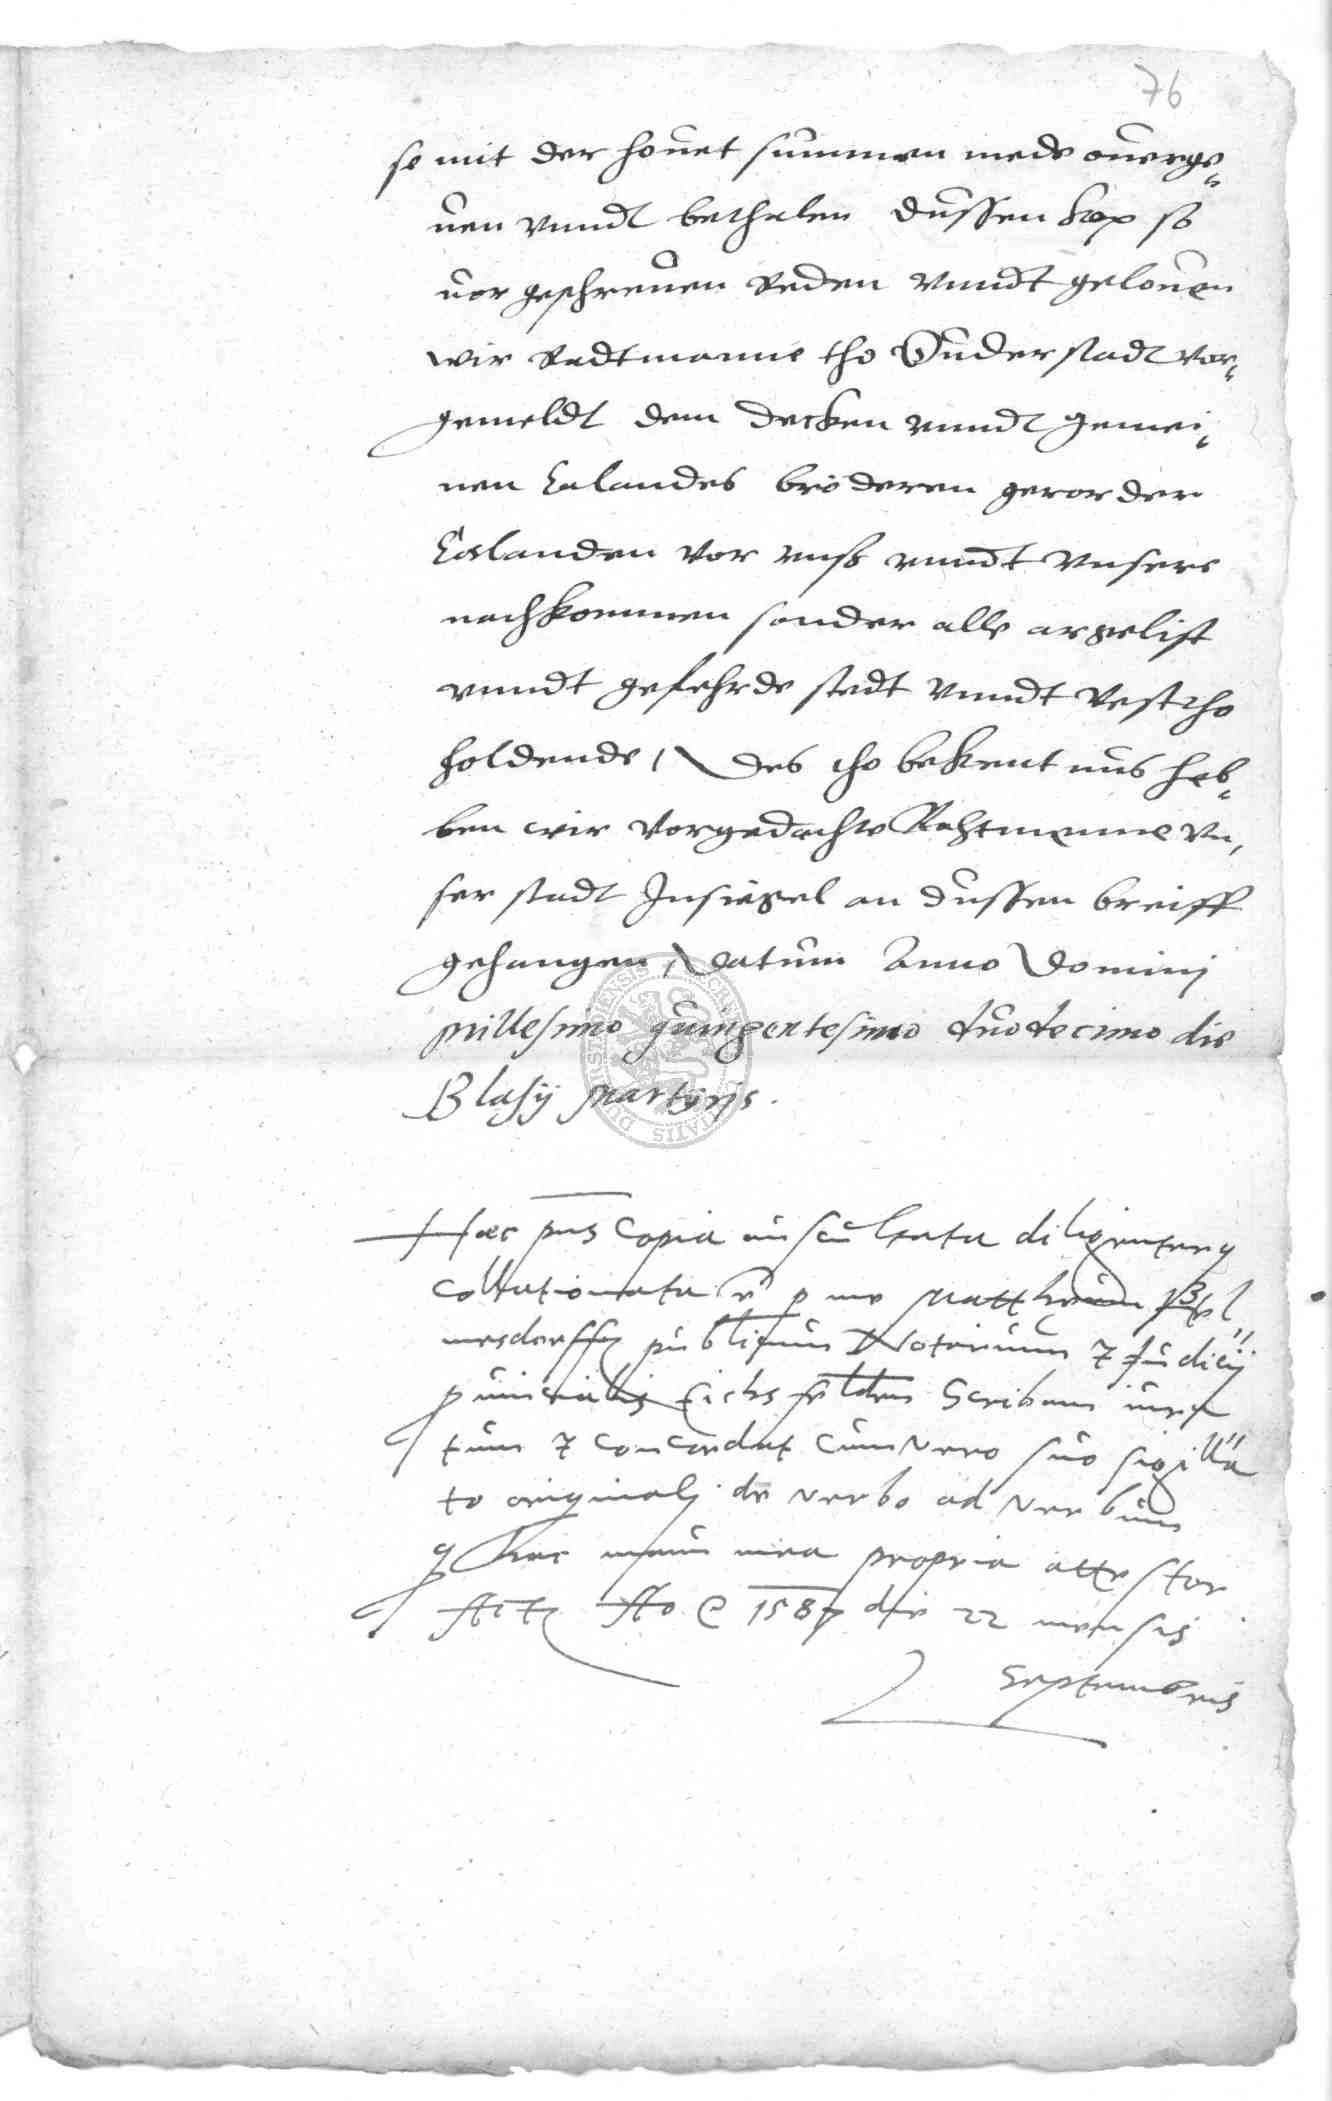 76
so mit der houet summen mede auerge„
uen vnndt bethalen dussen kop so
uor geschreuen Reden vnndt gelouen
wir Radtmanne tho Duderstadt vor„
gemeldt dem decken vnndt gemei„
nen Calandes bröderen geror der
Calanden vor vnß vnndt vnsere
nachkommen sonder alle argelist
vnndt gefehrde stedt vnndt vest tho
holdende, Des tho bekentnus heb„
ben wir vorgedachte Rahtmenne vn,
ser stadt Insiegel an dussen breiff
gehangen, Datum Anno Dominj
millesimo quingentesimo duodecimo die
Blasij Martyris.
Hæc pns Copia auscultata diligenterq
collationata ē p me Mattheum
mesdorff publicum Notarium & Judicij
puincialis Eichsfelden Scribam iura
tum & concordat cum vero suo sigilla„
to originalj de verbo ad verbum
q hac manu mea propria attestor
Act Ao 1587 die 22 mensis
Septembris